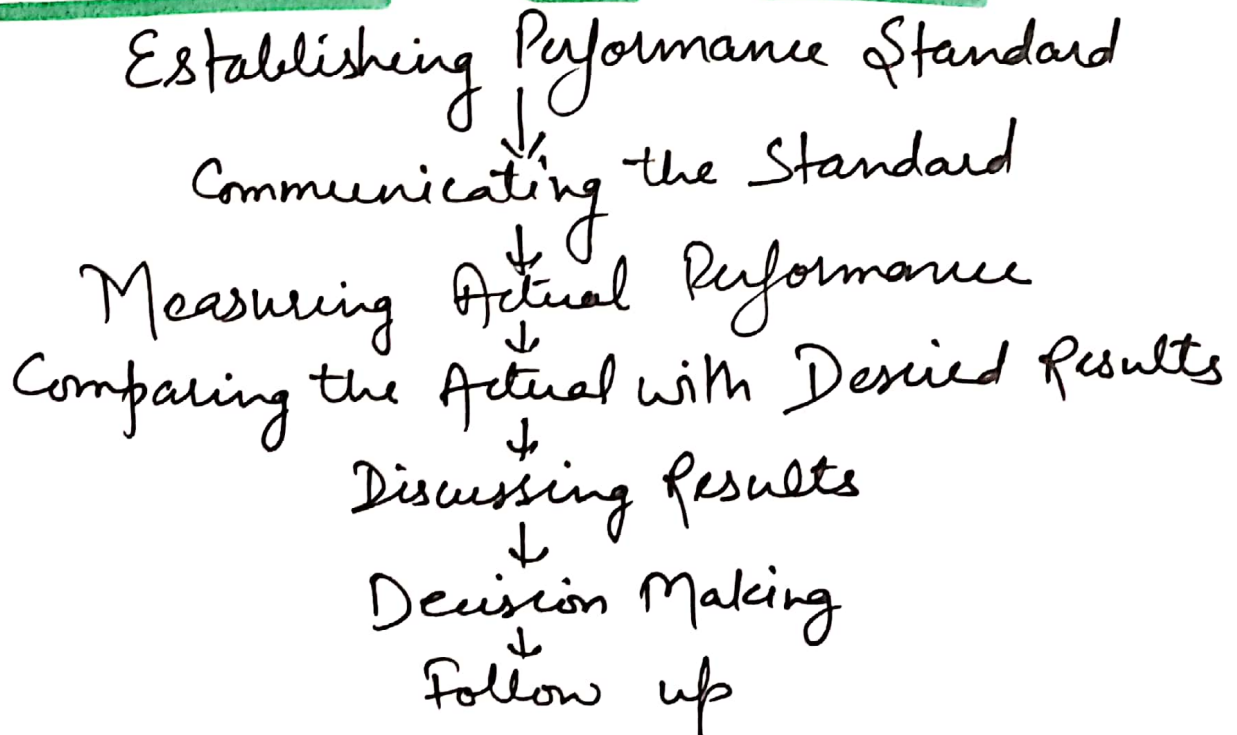 Establishing Performance Standard
↓
Communicating the Standard
↓
Measuring Actual Performance
↓
Comparing the Actual with Desired Results
↓
Discussing Results
↓
Decision Making
↓
Follow up